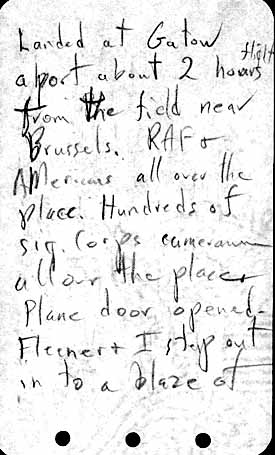 Landed at Gatow
aport about 2 hours flight
from the field near
Brussels. RAF &
Americans all over the
place. Hundreds of
sig. Corps cameramen
all over the place &
Plane door opened -
& I step out
in to a blaze of